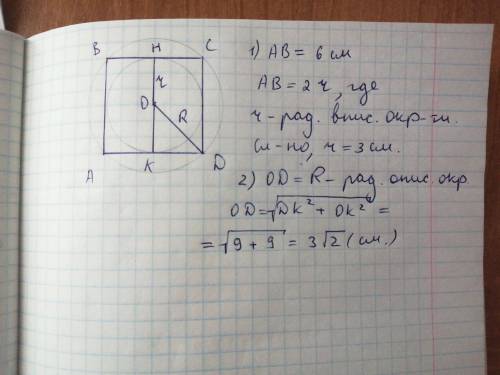 B H C
r
O R
A K D
1) AB = 6 см
AB = 2 r, где
r - рад. впис. окр-ти.
Сл-но, r = 3 см.
2) OD = R - рад. опис. окр.
OD = √DK² + OK² =
= √9 + 9 = 3√2 (см.)